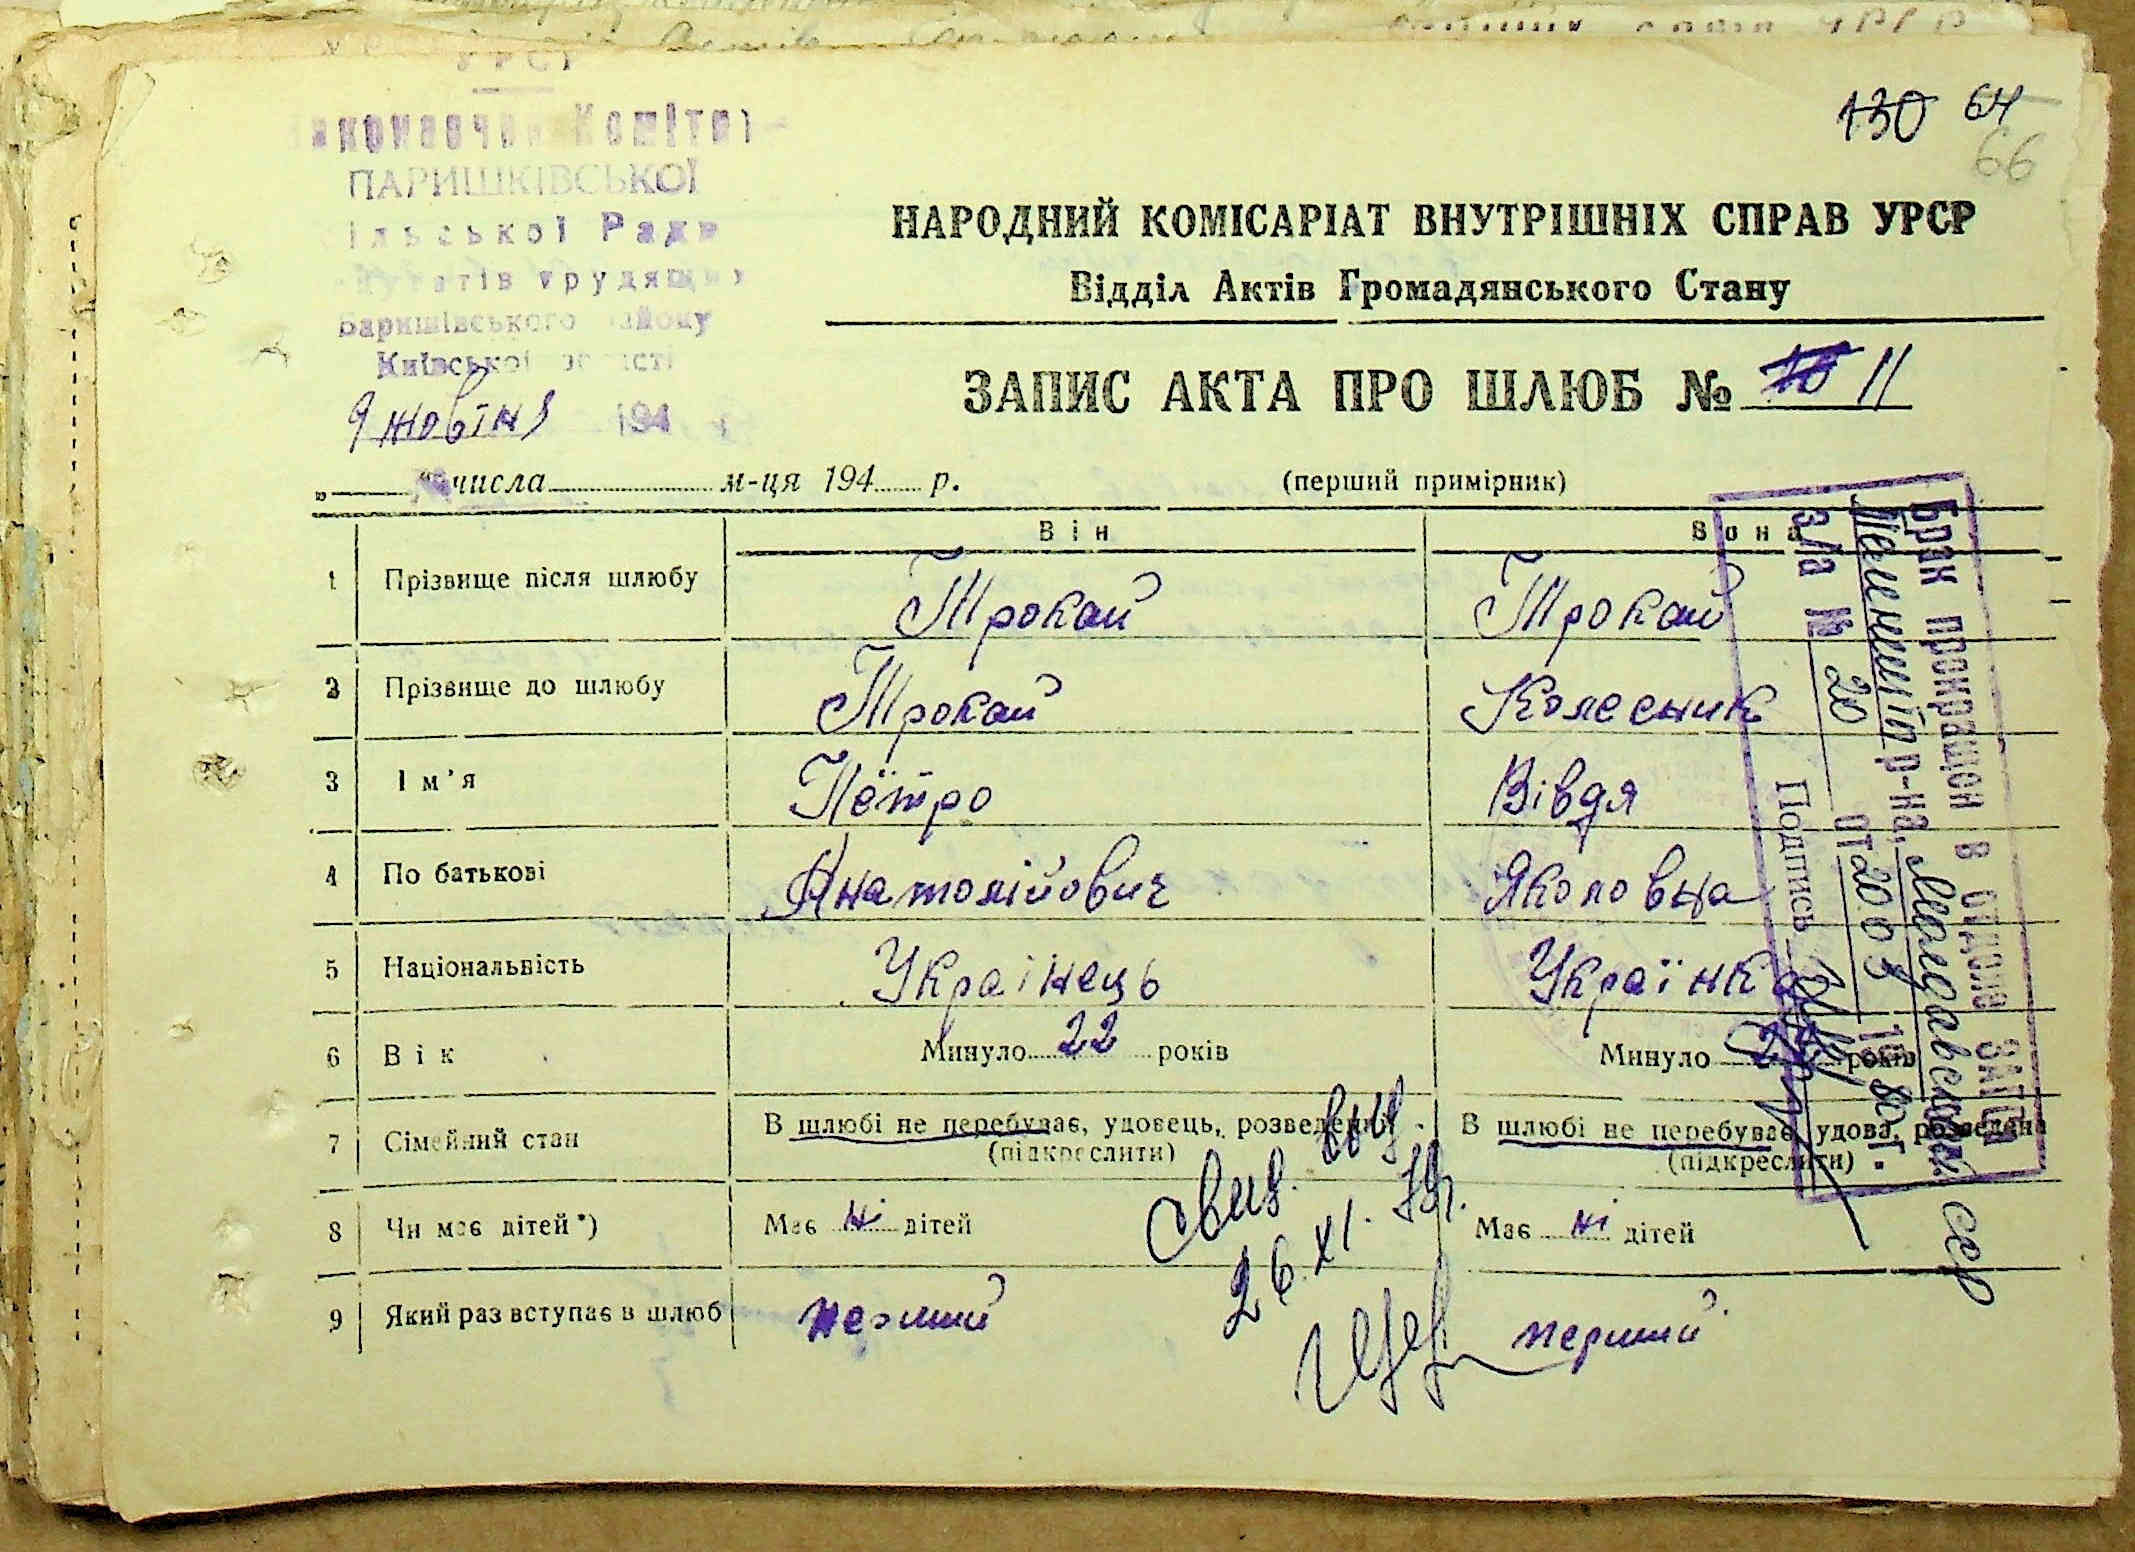 130 64
66
УРСР
Виконавчий Комітет
ПАРИШКІВСЬКОЇ
Сільської Ради
депутатів трудящих
Баришівського району
Київської області
9 жовтня 194
НАРОДНИЙ КОМІСАРІАТ ВНУТРІШНІХ СПРАВ УРСР
Відділ Актів Громадянського Стану
ЗАПИС АКТА ПРО ШЛЮБ № 10 11
„ “ числа м-ця 194 р. (перший примірник)
Він Вона
1 Прізвище після шлюбу Трокай Трокай
2 Прізвище до шлюбу Трокай Колесник
3 Ім'я Пётро Вівдя
4 По батькові Анатолійович Яколовна
5 Національність Украінець Українка
6 Вік Минуло 22 років Минуло років
7 Сімейний стан В шлюбі не перебуває, удовець, розведений В шлюбі не перебуває, удова, розведена
(підкреслити) (підкреслити)
8 Чи має дітей*) Має ні дітей Має ні дітей
9 Який раз вступає в шлюб перший перший
Брак прокращон в отделе ЗАГСа
р-на, Молдавской ССР
з/а № 20 от 20 03 г.
Подпись
26.XI.